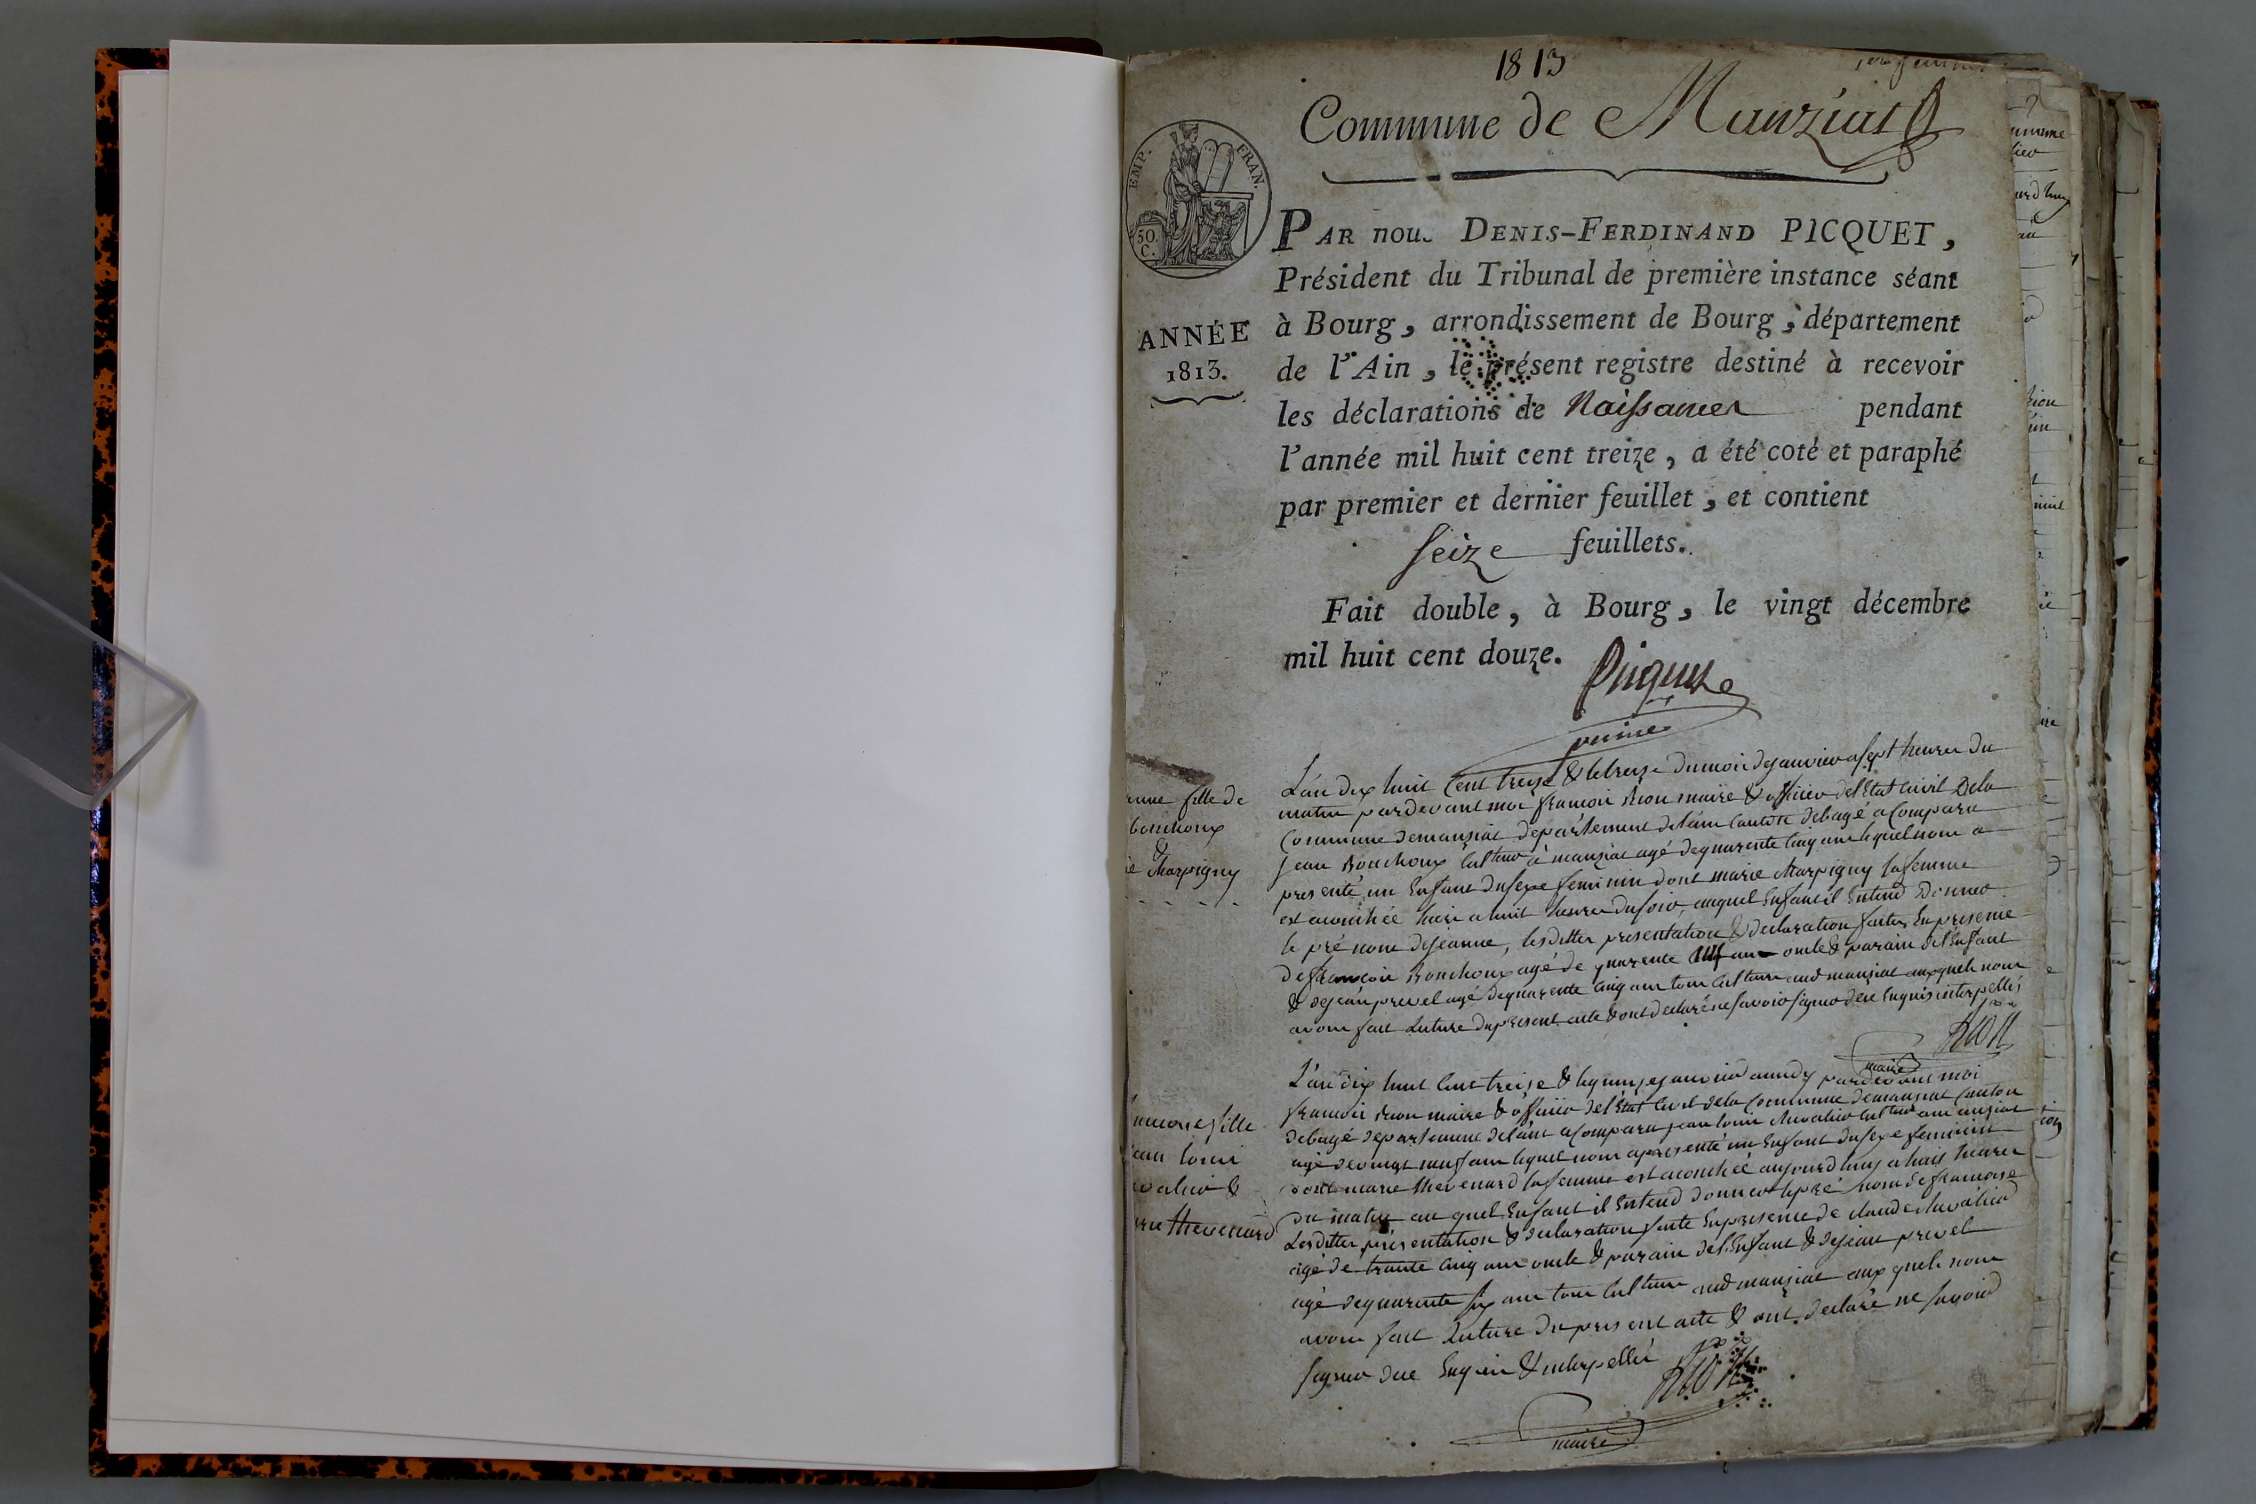 1813
Commune de Manziat
EMP. FRAN.
50. C.
PAR nous DENIS-FERDINAND PICQUET,
Président du Tribunal de première instance séant
à Bourg, arrondissement de Bourg, département
de l'Ain, le présent registre destiné à recevoir
les déclarations de Naissances pendant
l'année mil huit cent treize, a été coté et paraphé
par premier et dernier feuillet, et contient
seize feuillets.
Fait double, à Bourg, le vingt décembre
mil huit cent douze.
Picquet
ANNÉE
1813.
fille de
bonchoux
&
Marpigny
L'an dix huit Cent treise & le treise du mois de janvier a sept heures du
matin pardevant moi françois Rion maire & officier de l'Etat Civil De la
Commune demanziat département del'ain Canton debagé a Comparu
jean Bonchoux Cult.eur à manziat agé dequarente Cinq ans lequel nous a
presenté un Enfant du sexe feminin dont marie Marpigny sa femme
est acouchée hier a huit heures du soir, auquel Enfant il Entend Donner
le pré nom dejeanne, lesdittes presentation & declaration faites En presence
defrançois Bonchoux agé de quarente ans oncle & parain del'Enfant
& dejean prevel agé dequarente Cinq ans tous Cultiv manziat auxquels nous
avons fait Lecture du present acte & ont declaré ne savoir signer de ce Enquis interpellés
Rion
maire
fille
jean louis
&
thevenard
L'an dix huit Cent treise & le janvier a midy pardevant moi
françois Rion maire & officier de l'Etat Civil dela Commune demanziat Canton
debagé departement del'ain a Comparu jean louis chevalier Cult.eur a manziat
agé devingt neuf ans lequel nous a presenté un Enfant du sexe feminin
dont marie thevenard sa femme est acouchée aujourd'huy a huit heures
du matin au quel Enfant il Entend donner le pré nom de francoise
Lesdittes présentation & declaration faite En presence de claude chevalier
agé de trante Cinq ans oncle & parain del'Enfant & dejean prevel
agé dequarente six ans tous Cultiv manziat aux quels nous
avons fait Lecture du present acte & ont declaré ne savoir
signer de ce Enquis & interpellés
Rion
maire